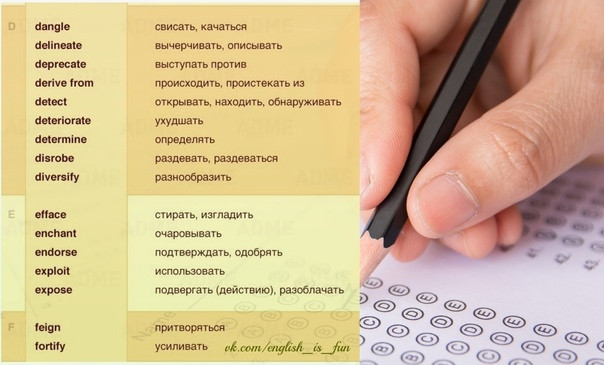 D dangle свисать, качаться
delineate вычерчивать, описывать
deprecate выступать против
derive from происходить, проистекать из
detect открывать, находить, обнаруживать
deteriorate ухудшать
determine определять
disrobe раздевать, раздеваться
diversify разнообразить
E efface стирать, изгладить
enchant очаровывать
endorse подтверждать, одобрять
exploit использовать
expose подвергать (действию), разоблачать
F feign притворяться
fortify усиливать
vk.com/english_is_fun